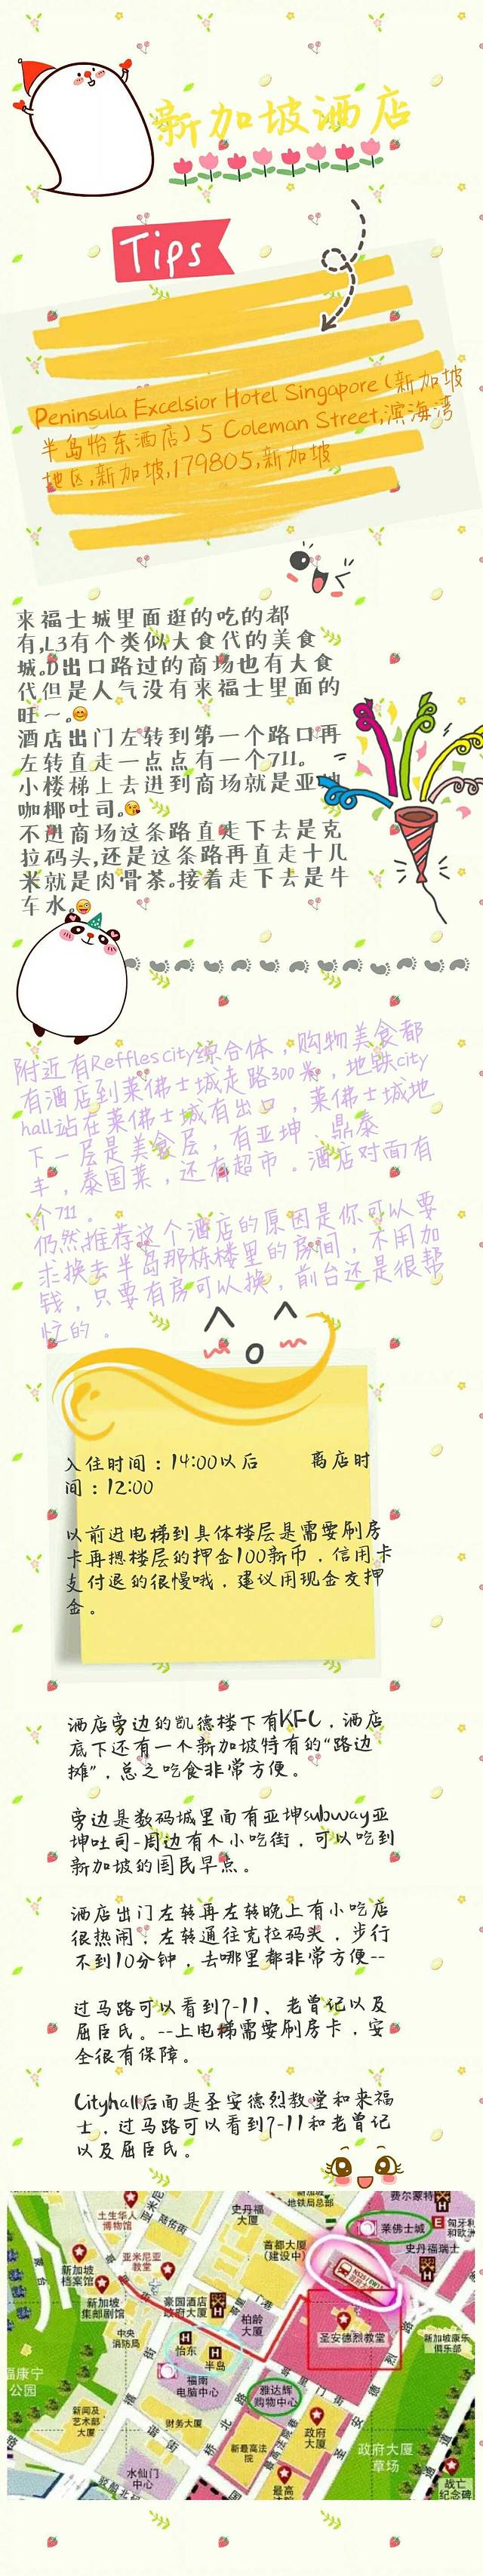 新加坡酒店
Tips
Peninsula Excelsior Hotel Singapore (新加坡
半岛怡东酒店) 5 Coleman Street,滨海湾
地区,新加坡,179805,新加坡
来福士城里面逛的吃的都
有,L3有个类似大食代的美食
城。D出口路过的商场也有大食
代但是人气没有来福士里面的
旺~。
酒店出门左转到第一个路口再
左转直走一点点有一个711。
小楼梯上去进到商场就是亚坤
咖椰吐司。
不进商场这条路直走下去是克
拉码头,还是这条路再直走十几
米就是肉骨茶。接着走下去是牛
车水。
附近有Refflescity综合体，购物美食都
有酒店到莱佛士城走路300米，地铁city
hall站在莱佛士城有出口，莱佛士城地
下一层是美食层，有亚坤，鼎泰
丰，泰国菜，还有超市。酒店对面有
个711。
仍然推荐这个酒店的原因是你可以要
求换去半岛那栋楼里的房间，不用加
钱，只要有房可以换，前台还是很帮
忙的。
入住时间：14:00以后 离店时
间：12:00
以前进电梯到具体楼层是需要刷房
卡再摁楼层的押金100新币，信用卡
支付退的很慢哦，建议用现金交押
金。
酒店旁边的凯德楼下有KFC，酒店
底下还有一个新加坡特有的“路边
摊”，总之吃食非常方便。
旁边是数码城里面有亚坤subway亚
坤吐司-周边有个小吃街，可以吃到
新加坡的国民早点。
酒店出门左转再左转晚上有小吃店
很热闹；左转通往克拉码头，步行
不到10分钟，去哪里都非常方便--
过马路可以看到7-11、老曾记以及
屈臣氏。--上电梯需要刷房卡，安
全很有保障。
Cityhall后面是圣安德烈教堂和来福
士，过马路可以看到7-11和老曾记
以及屈臣氏。
土生华人
博物馆
陆佑街
史丹福
大厦
地铁局总部
费尔蒙特
莱佛士城
匈牙利
和欧洲
史丹福瑞士
首都大厦
(建设中)
亚米尼亚
教堂
新加坡
档案馆
新加坡
集邮馆
剧馆
豪国酒店
政府大厦
柏龄
大厦
中央
消防局
怡东
半岛
圣安德烈教堂
新加坡康乐
俱乐部
福康宁
公园
福南
电脑中心
雅达辉
购物中心
新闻及
艺术部
大厦
财务大厦
新最高法
院
政府
大厦
政府大厦
草场
水仙门
中心
最高
战亡
纪念碑